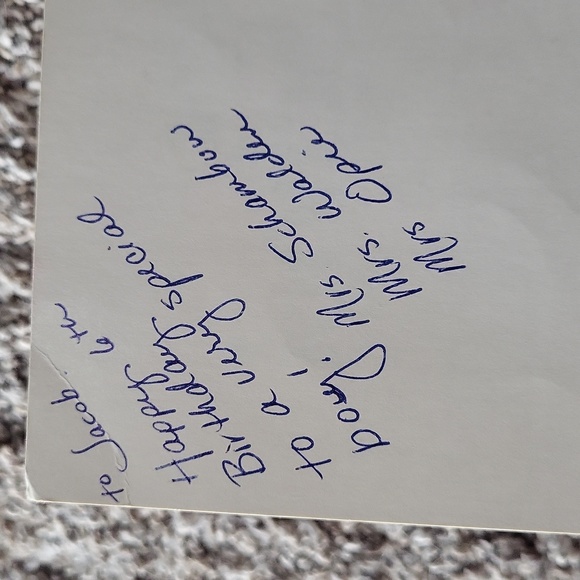 to Jacob.
Happy 6th
Birthday
to a very special
boy!
Mrs. Schambow
Mrs. Walden
Mrs Opie